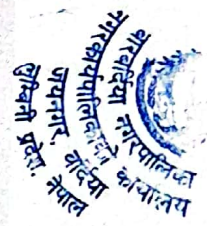 बारबर्दिया नगरपालिका
नगर कार्यपालिकाको कार्यालय
जयनगर, बर्दिया
लुम्बिनी प्रदेश, नेपाल